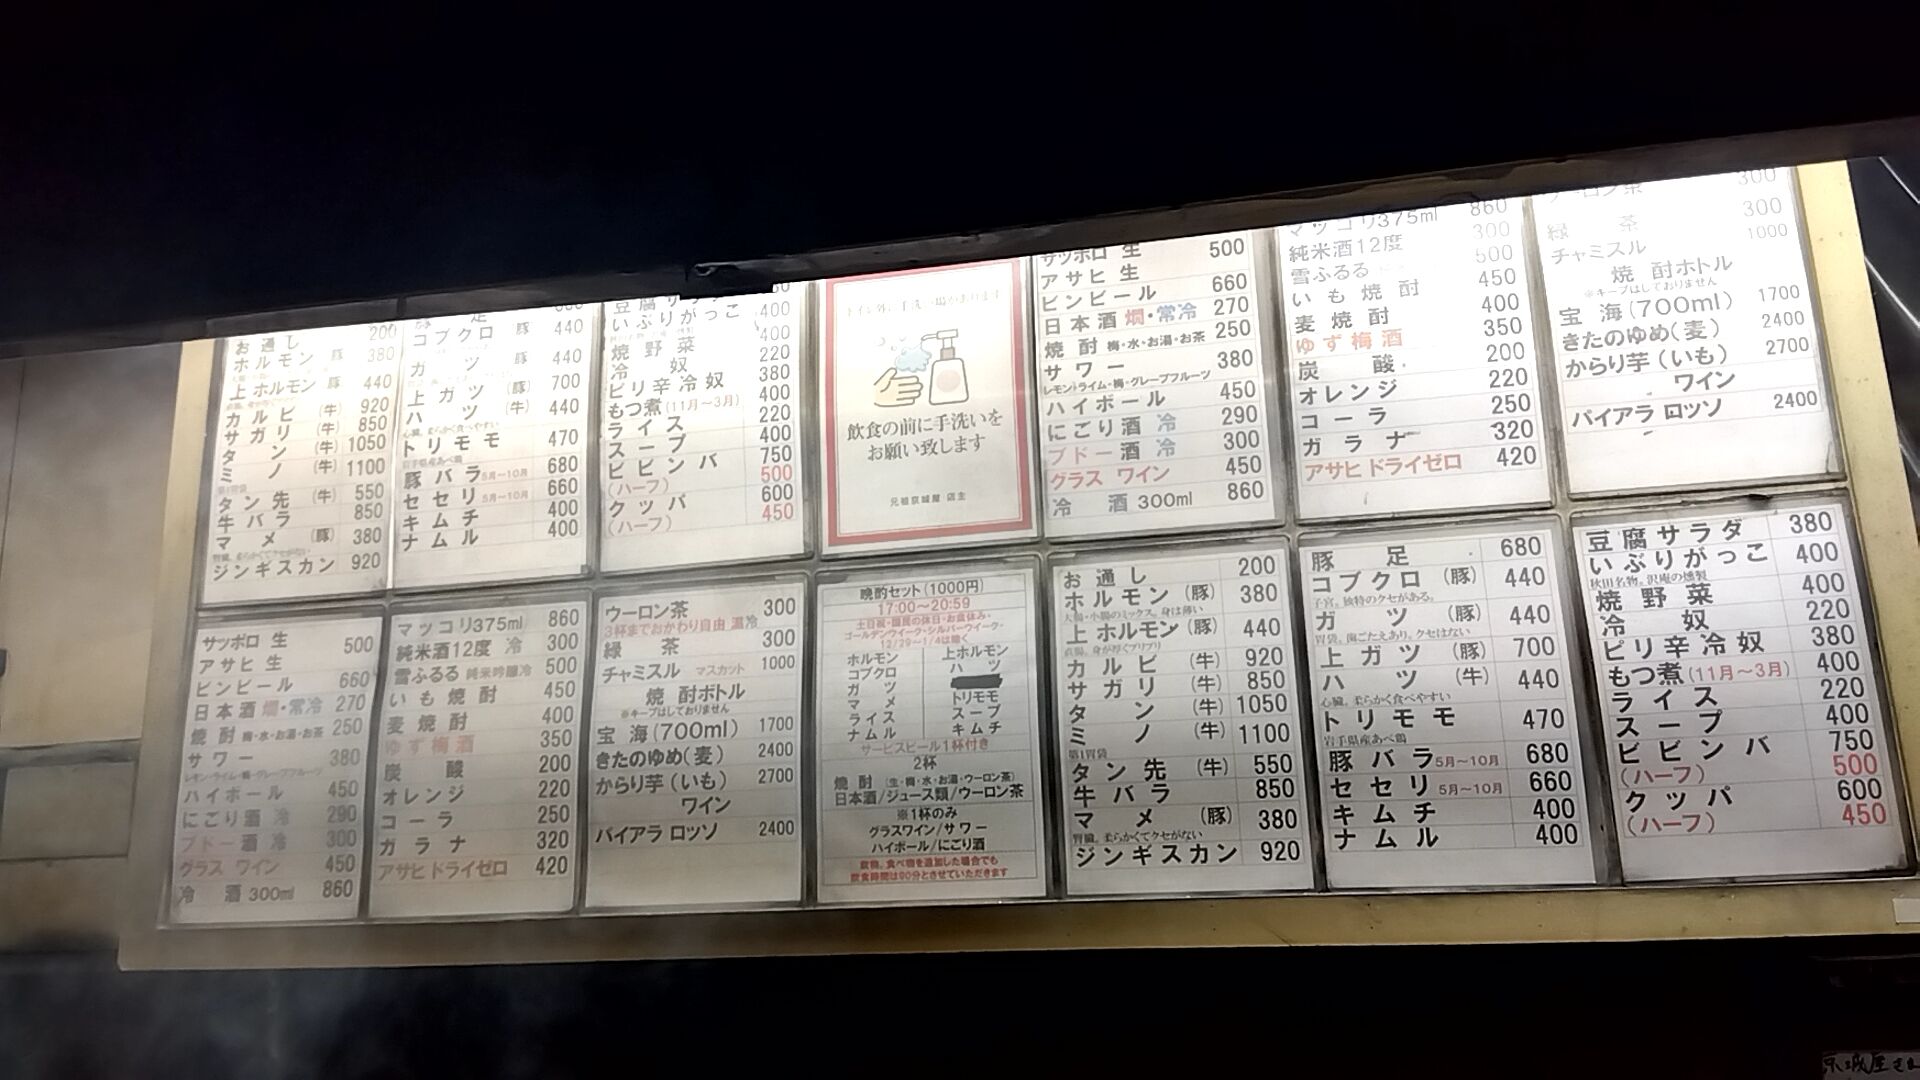 お通し 200
ホルモン 豚 380
上ホルモン 豚 440
カルビ (牛) 920
サガリ (牛) 850
タン (牛) 1050
ミノ (牛) 1100
第1胃袋
タン先 (牛) 550
牛バラ 850
マメ (豚) 380
腎臓。柔らかくてクセがない
ジンギスカン 920
コブクロ 豚 440
ガツ 豚 440
上ガツ (豚) 700
ハツ (牛) 440
心臓。柔らかく食べやすい
トリモモ 470
岩手県産あべ鶏
豚バラ 5月～10月 680
セセリ 5月～10月 660
キムチ 400
ナムル 400
いぶりがっこ 400
焼野菜 400
冷奴 220
ピリ辛冷奴 380
もつ煮 (11月～3月) 400
ライス 220
スープ 400
ビビンバ 750
(ハーフ) 500
クッパ 600
(ハーフ) 450
飲食の前に手洗いを
お願い致します
元祖京城屋 店主
サッポロ 生 500
アサヒ 生
ビンビール 660
日本酒 燗・常冷 270
焼酎 梅・水・お湯・お茶 250
サワー 380
レモン・ライム・梅・グレープフルーツ
ハイボール 450
にごり酒 冷 290
ブドー酒 冷 300
グラス ワイン 450
冷酒 300ml 860
マッコリ375ml 860
純米酒12度 300
雪ふるる 500
いも焼酎 450
麦焼酎 400
ゆず梅酒 350
炭酸 200
オレンジ 220
コーラ 250
ガラナ 320
アサヒ ドライゼロ 420
300
緑茶 300
チャミスル 1000
焼酎ボトル
※キープはしておりません
宝海(700ml) 1700
きたのゆめ(麦) 2400
からり芋(いも) 2700
ワイン
バイアラ ロッソ 2400
サッポロ 生 500
アサヒ 生
ビンビール 660
日本酒 燗・常冷 270
焼酎 梅・水・お湯・お茶 250
サワー 380
レモン・ライム・梅・グレープフルーツ
ハイボール 450
にごり酒 冷 290
ブドー酒 冷 300
グラス ワイン 450
冷酒 300ml 860
マッコリ375ml 860
純米酒12度 冷 300
雪ふるる 純米吟醸冷 500
いも焼酎 450
麦焼酎 400
ゆず梅酒 350
炭酸 200
オレンジ 220
コーラ 250
ガラナ 320
アサヒ ドライゼロ 420
ウーロン茶 300
3杯までおかわり自由 温冷
緑茶 300
チャミスル マスカット 1000
焼酎ボトル
※キープはしておりません
宝海(700ml) 1700
きたのゆめ(麦) 2400
からり芋(いも) 2700
ワイン
バイアラ ロッソ 2400
晩酌セット(1000円)
17:00～20:59
土日祝・国民の休日・お盆休み・
ゴールデンウイーク・シルバーウイーク・
12/29～1/4は除く
ホルモン 上ホルモン
コブクロ ハツ
ガツ
マメ トリモモ
ライス スープ
ナムル キムチ
サービスビール1杯付き
2杯
焼酎 (生・梅・水・お湯・ウーロン茶)
日本酒/ジュース類/ウーロン茶
※1杯のみ
グラスワイン/サワー
ハイボール/にごり酒
飲物。食べ物を追加した場合でも
飲食時間は90分とさせていただきます
お通し 200
ホルモン (豚) 380
大腸・小腸のミックス。身は薄い
上ホルモン (豚) 440
直腸。身が厚くプリプリ
カルビ (牛) 920
サガリ (牛) 850
タン (牛) 1050
ミノ (牛) 1100
第1胃袋
タン先 (牛) 550
牛バラ 850
マメ (豚) 380
腎臓。柔らかくてクセがない
ジンギスカン 920
豚足 680
コブクロ (豚) 440
子宮。独特のクセがある。
ガツ (豚) 440
胃袋。歯ごたえあり。クセはない
上ガツ (豚) 700
ハツ (牛) 440
心臓。柔らかく食べやすい
トリモモ 470
岩手県産あべ鶏
豚バラ 5月～10月 680
セセリ 5月～10月 660
キムチ 400
ナムル 400
豆腐サラダ 380
いぶりがっこ 400
秋田名物。沢庵の燻製
焼野菜 400
冷奴 220
ピリ辛冷奴 380
もつ煮 (11月～3月) 400
ライス 220
スープ 400
ビビンバ 750
(ハーフ) 500
クッパ 600
(ハーフ) 450